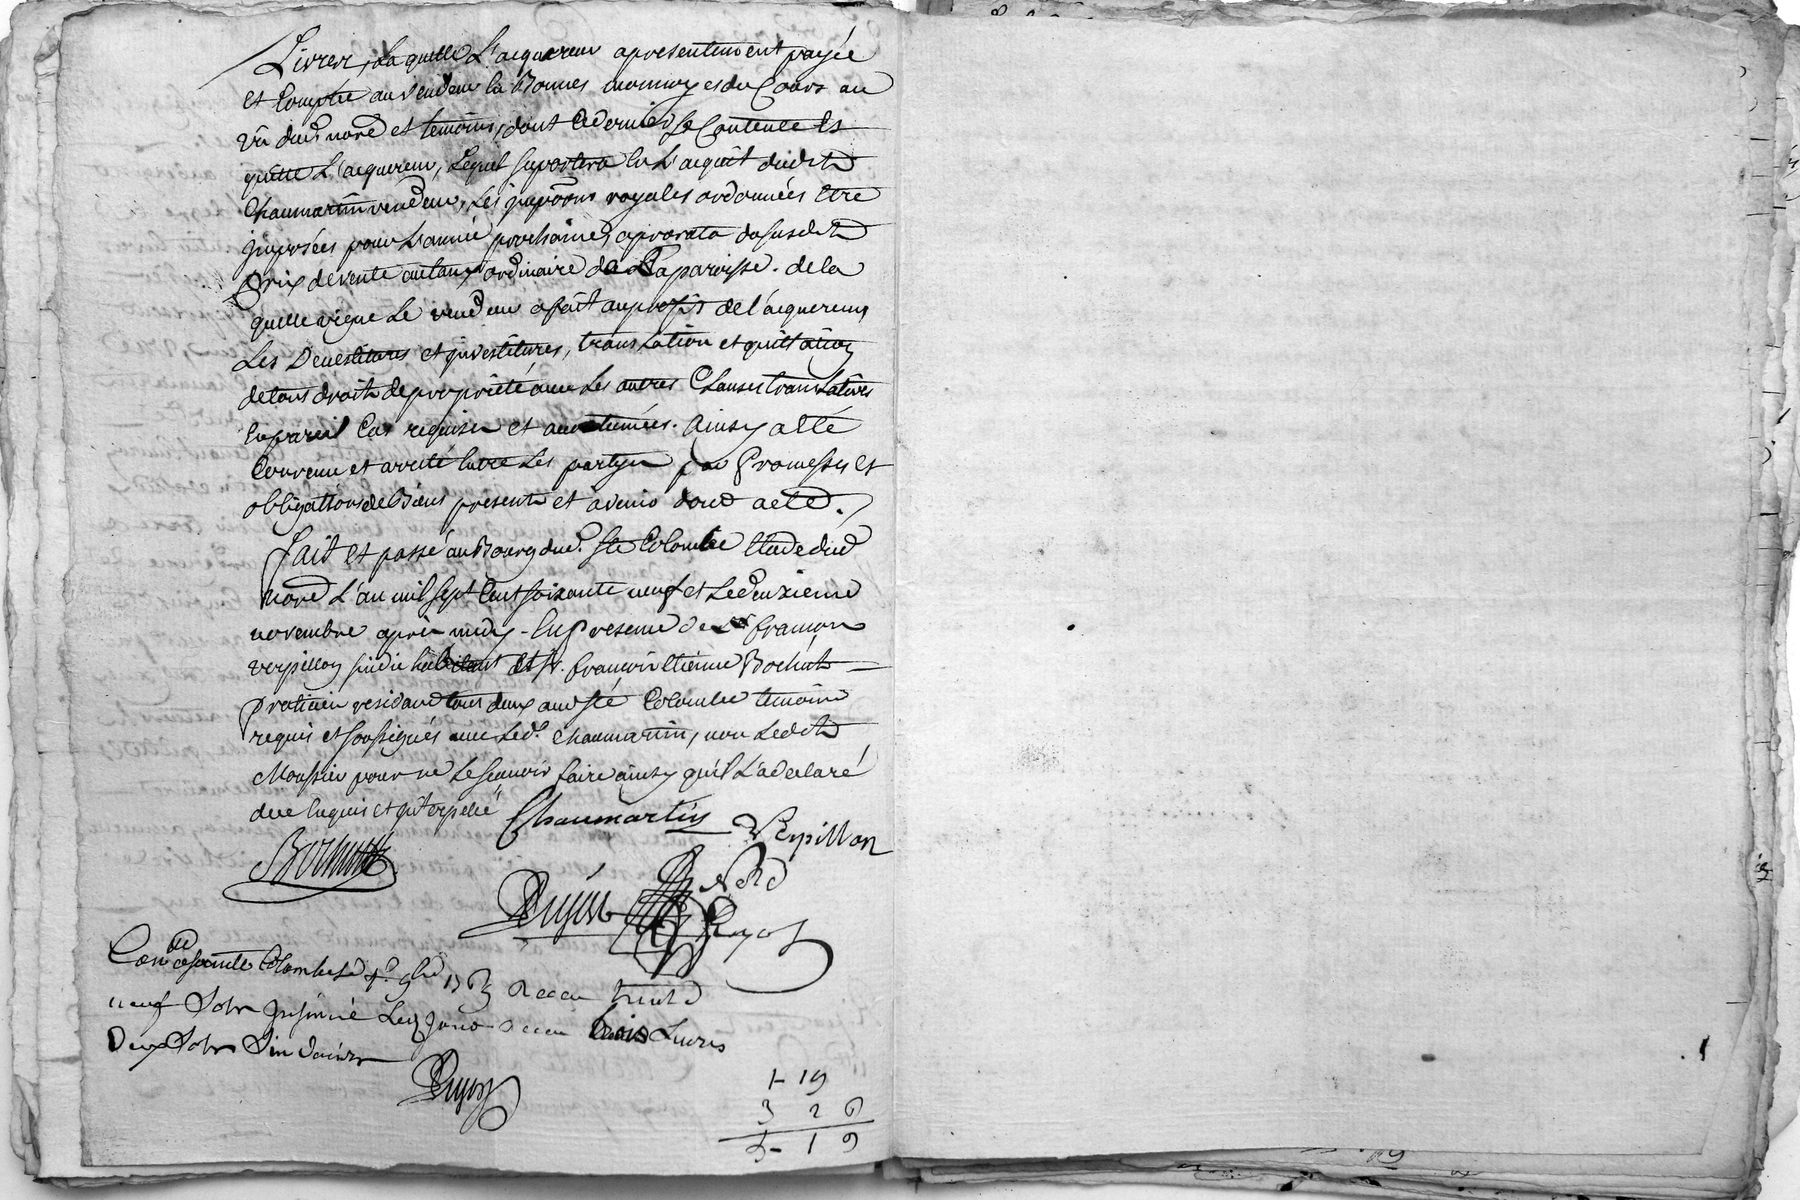 Livres, Laquelle L'acquereur apresentement payée
et Comptée au vendeur En Bonnes monnoyes du Cours au
vû dud. nore et temoins, dont Ce dernier Se Contente Et
quitte L'acquereur, Lequel Suportera En L'acquit dudit
Chaumartin vendeur, Les jmpons royales ordonnées Etre
jmposées pour L'année prochaine, aprorata dususdit
Prix devente autaux ordinaire de La paroisse. de la
quelle vigne Le vendeur afait auprofit de l'acquereur
Les Devestitures et jnvestitures, transLation et quittation
detous droits depropriété avec Les autres Clauses transLatives
Enpareil Cas requises et accoutumées. Ainsy a Eté
Convenu et arreté Entre Les partyes par Promesses Et
obligations deBiens presents et avenir dont acte.
fait et passé auBourg dud. Ste Colombe Etude dud
nore L'an mil Sept Cent Soixante neuf et Le deuxieme
novembre après midy - En presence de Sr françois
verpillon sindic habitant Et Sr. françois Etienne Bochut
Praticien residant tous deux aud Ste Colombe temoins
requis et Soussignés avec Led. Chaumartin, non Ledit
Moussier pour ne Le Scavoir faire ainsy qu'il L'a declaré
de ce Enquis et jnterpellé
Chaumartin
Verpillon
Bochut
Nore
Con. de Sainte Colombe Le 4e. 9bre 1769 Receu trente
neuf Sols jnsinué Led jour Receu trois Livres
Deux Sols Six deniers
1 - 19
3 2 6
5 - 1 9